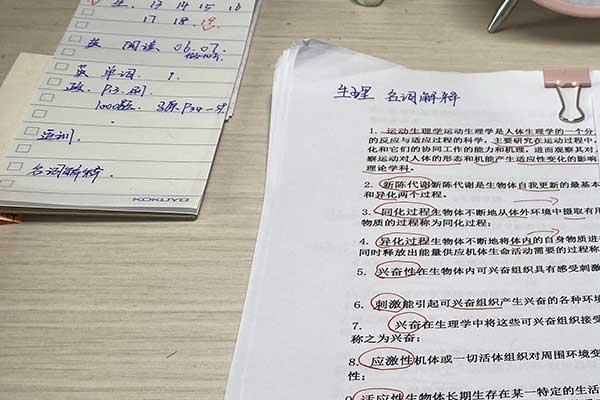 13 14 15 16
17 18 19
英 阅读 06.07.
英 单词. 1.
政. P13.
1000题.
名词解释.
KOKUYO
生理 名词解释
1. 运动生理学运动生理学是人体生理学的一个分
的反应与适应过程的科学，主要研究在运动过程中，
化和它们的协同工作的能力和机理，进而观察其对
察运动对人体的形态和机能产生适应性变化的影响
理论学科。
2. 新陈代谢新陈代谢是生物体自我更新的最基本
和异化两个过程。
3. 同化过程生物体不断地从体外环境中摄取有用
物质的过程称为同化过程；
4. 异化过程生物体不断地将体内的自身物质进
同时释放出能量供应机体生命活动需要的过程称
5. 兴奋性在生物体内可兴奋组织具有感受刺激
6. 刺激能引起可兴奋组织产生兴奋的各种环境
7. 兴奋在生理学中将这些可兴奋组织接受
称之为兴奋；
8. 应激性机体或一切活体组织对周围环境变
性；
适应性生物体长期生存在某一特定的生活